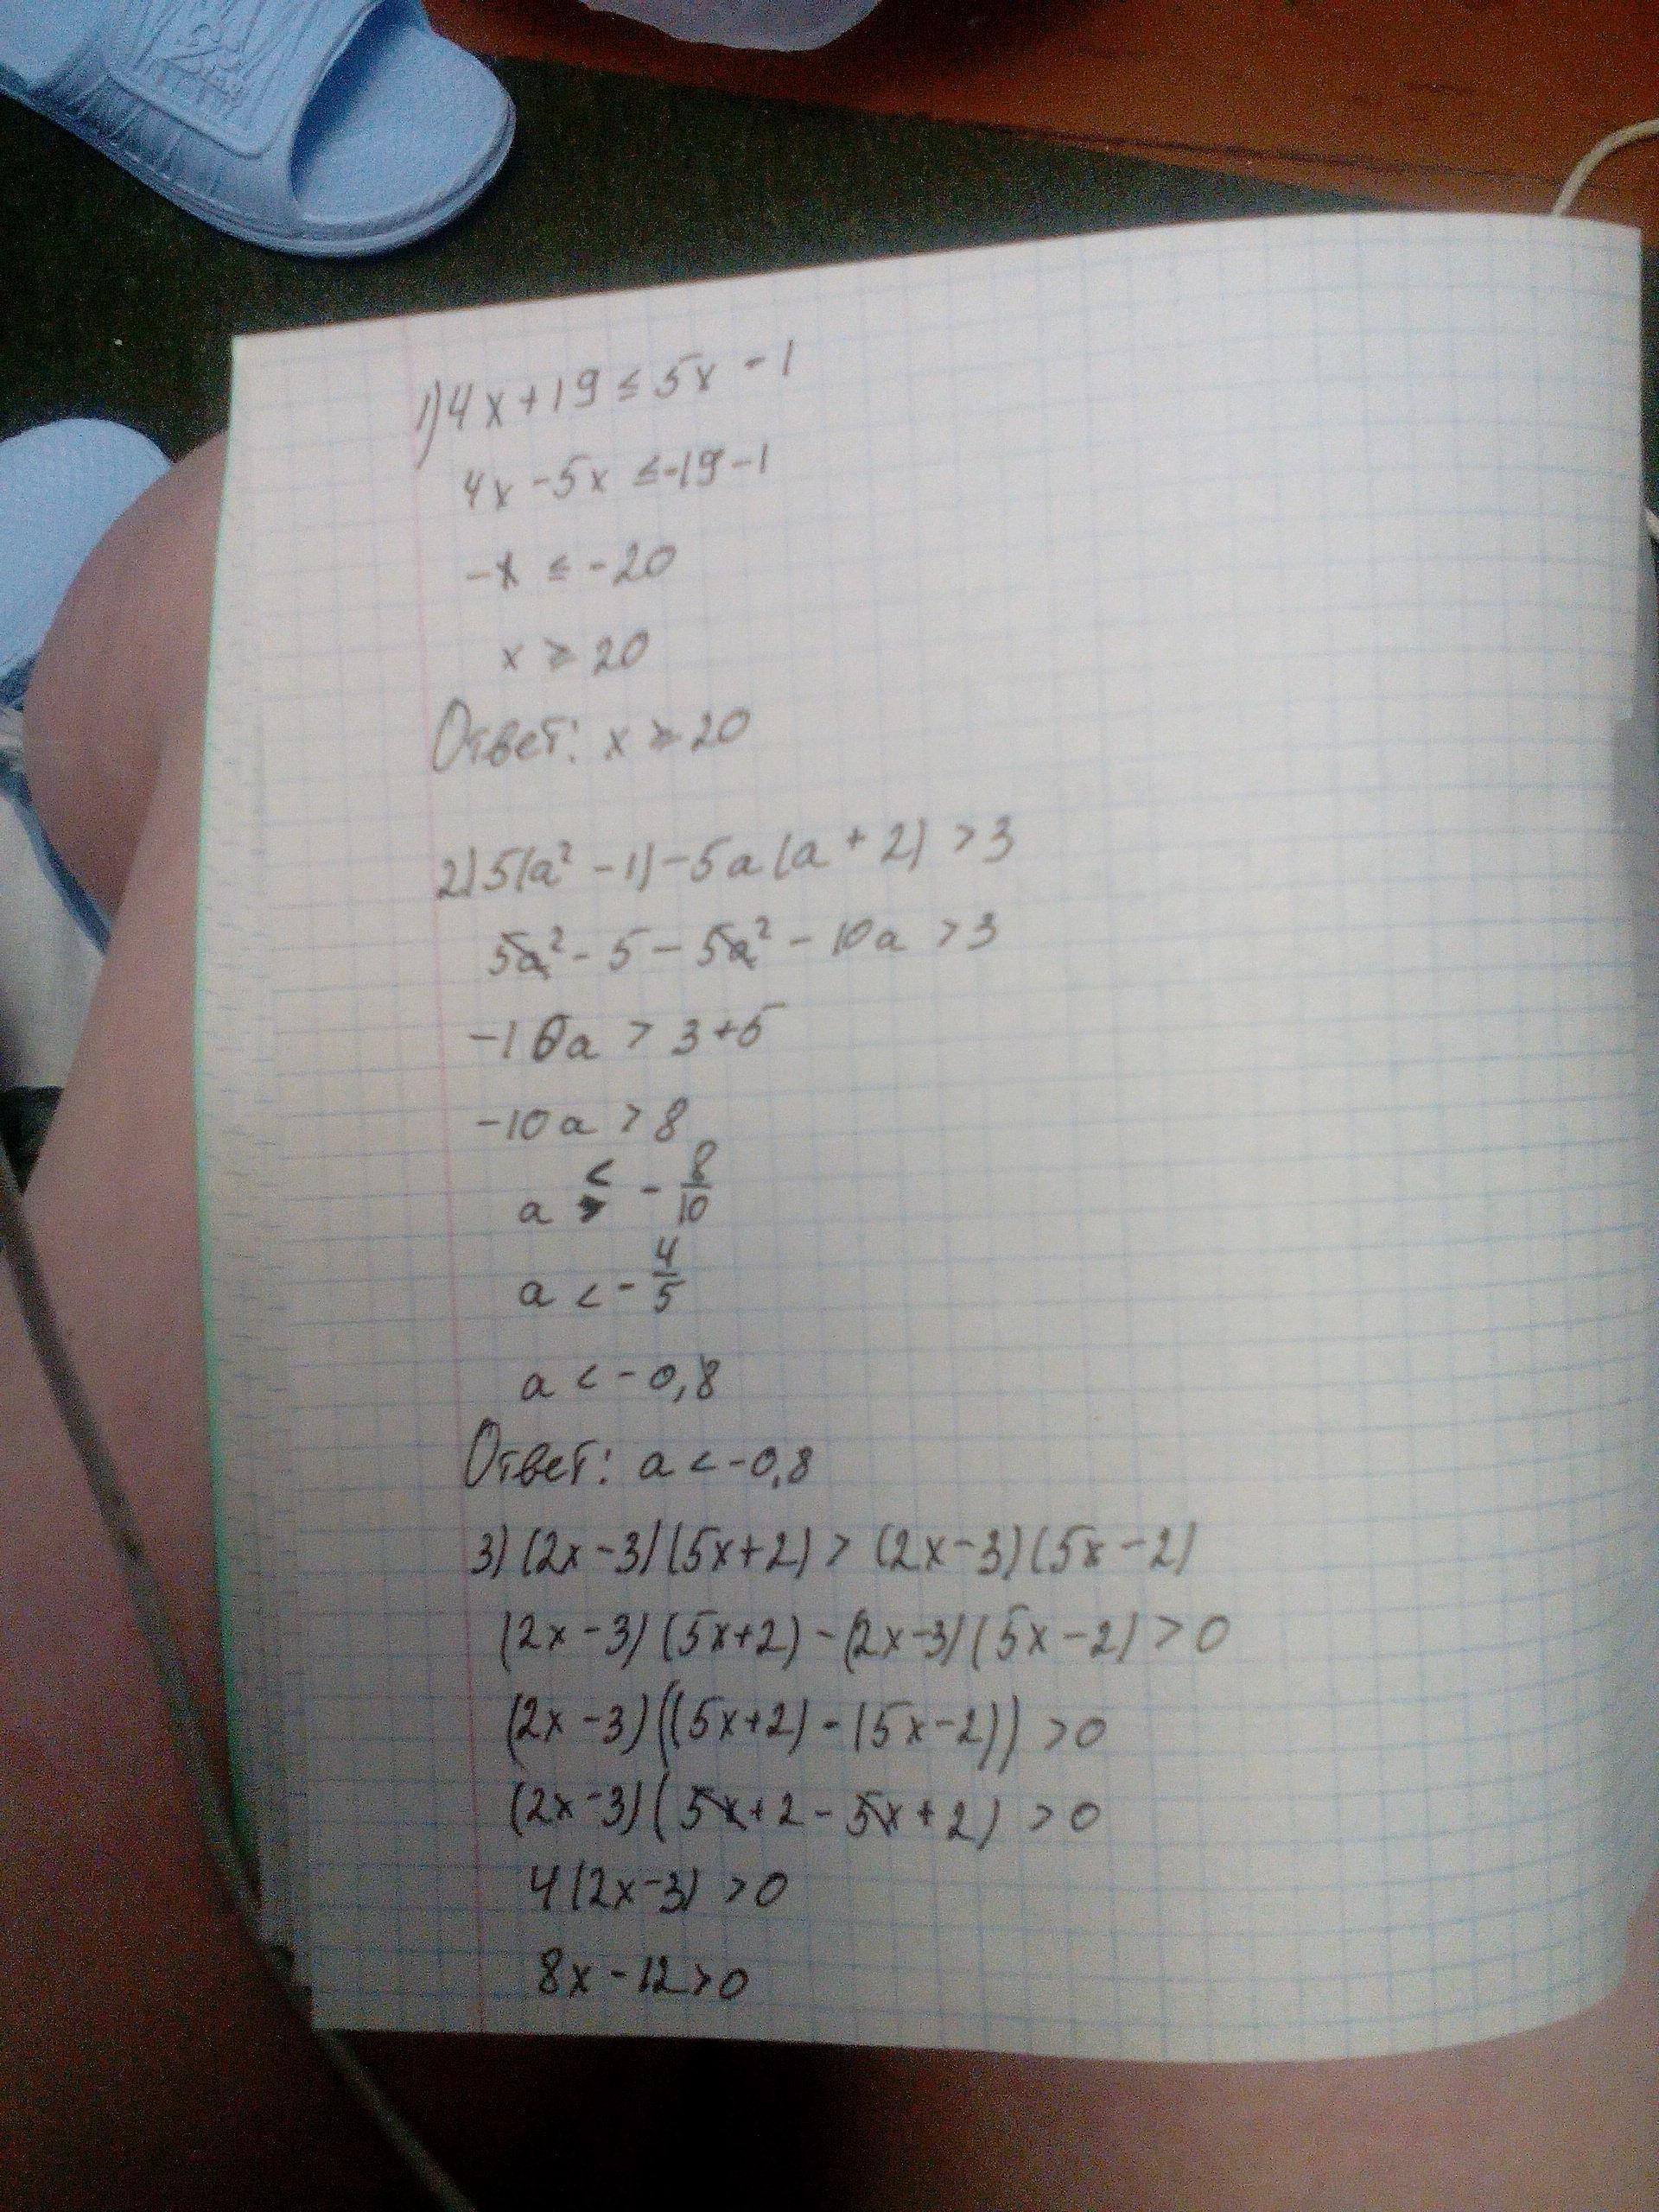 1) 4x + 19 ≤ 5x - 1
4x - 5x ≤ -19 - 1
-x ≤ -20
x ≥ 20
Ответ: x ≥ 20
2) 5(a² - 1) - 5a(a + 2) > 3
5a² - 5 - 5a² - 10a > 3
-10a > 3 + 5
-10a > 8
a < - 8/10
a < - 4/5
a < - 0,8
Ответ: a < -0,8
3) (2x - 3)(5x + 2) > (2x - 3)(5x - 2)
(2x - 3)(5x + 2) - (2x - 3)(5x - 2) > 0
(2x - 3)((5x + 2) - (5x - 2)) > 0
(2x - 3)(5x + 2 - 5x + 2) > 0
4(2x - 3) > 0
8x - 12 > 0